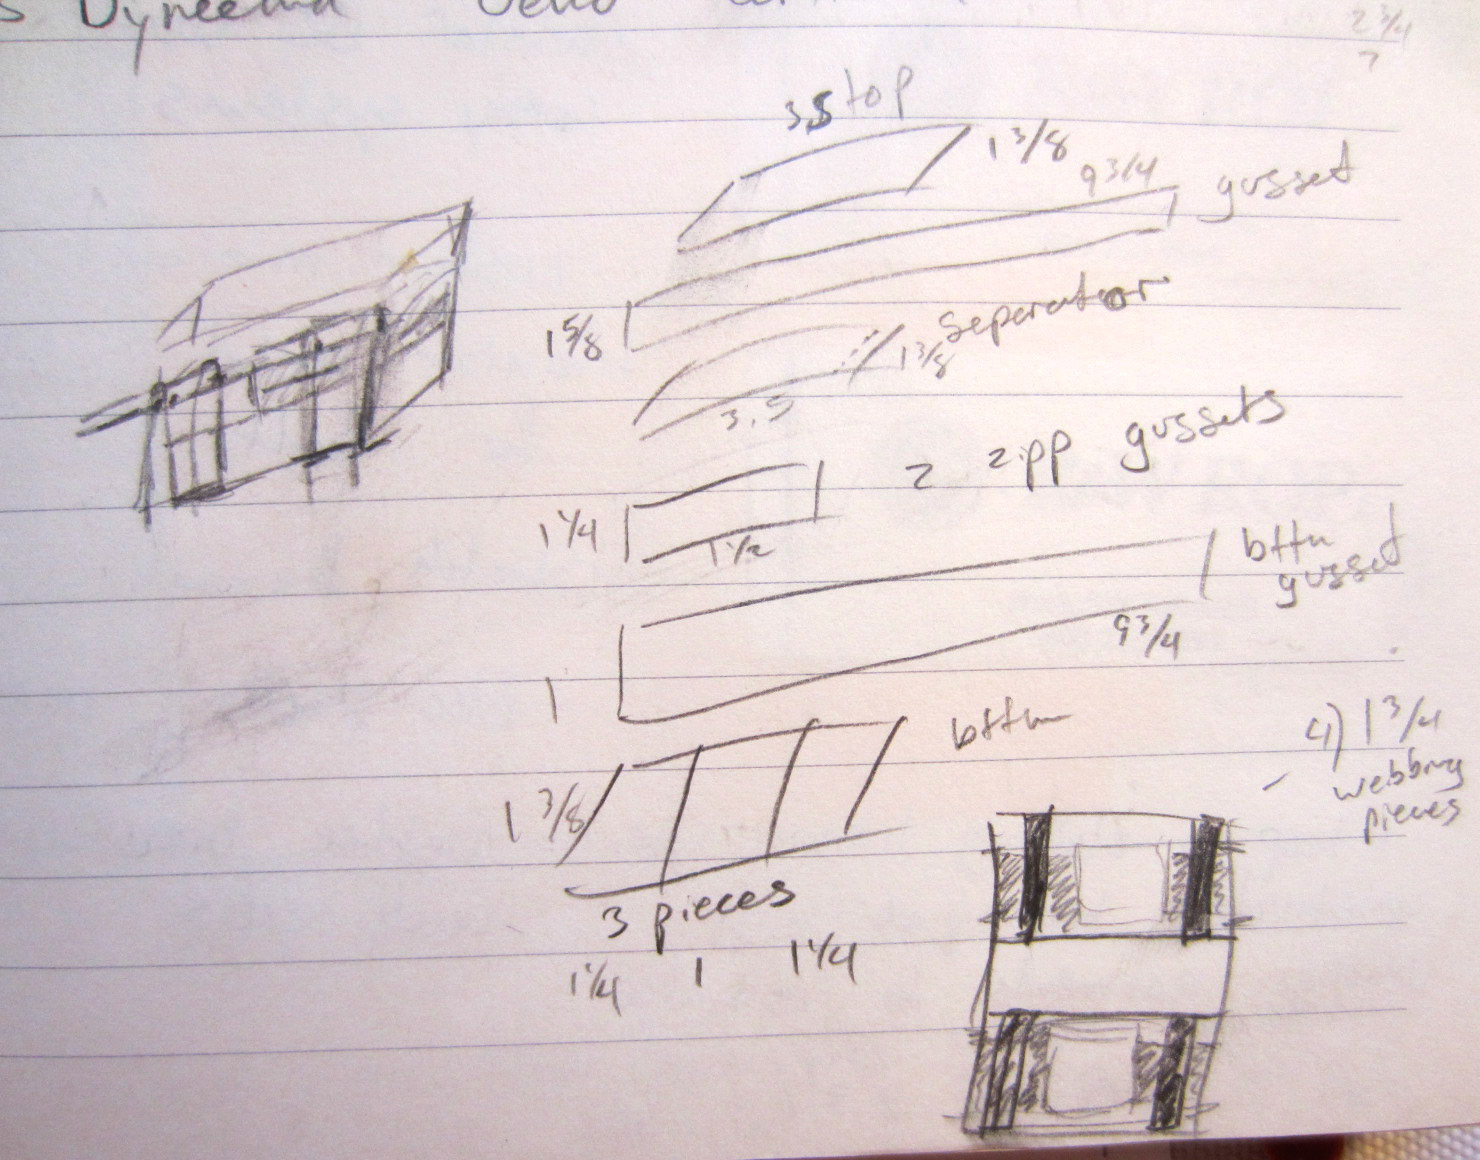 Dyneema
2 3/4
7
3,5 top
1 3/8
9 3/4 gusset
1 5/8
separator
1 3/8
3.5
2 zipp gussets
1 1/4
1 1/2
bttm
gusset
9 3/4
1
bttm
1 3/8
3 pieces
1 1/4 1 1 1/4
4) 1 3/4
webbing
pieces